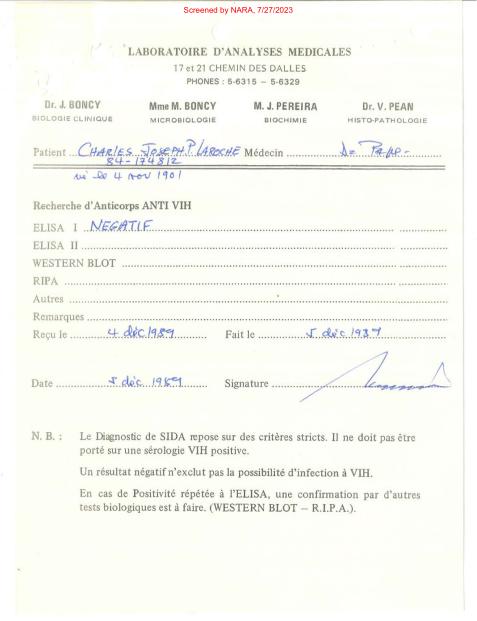 Screened by NARA, 7/27/2023
LABORATOIRE D'ANALYSES MEDICALES
17 et 21 CHEMIN DES DALLES
PHONES : 5-6315 – 5-6329
Dr. J. BONCY Mme M. BONCY M. J. PEREIRA Dr. V. PEAN
BIOLOGIE CLINIQUE MICROBIOLOGIE BIOCHIMIE HISTO-PATHOLOGIE
Patient CHARLES JOSEPH P. LAROCHE Médecin
84-174812
né le 4 nov 1901
Recherche d'Anticorps ANTI VIH
ELISA I NEGATIF
ELISA II
WESTERN BLOT
RIPA
Autres
Remarques
Reçu le 4 déc 1989 Fait le 5 déc 1989
Date 5 déc 1989 Signature
N. B. : Le Diagnostic de SIDA repose sur des critères stricts. Il ne doit pas être
porté sur une sérologie VIH positive.
Un résultat négatif n'exclut pas la possibilité d'infection à VIH.
En cas de Positivité répétée à l'ELISA, une confirmation par d'autres
tests biologiques est à faire. (WESTERN BLOT – R.I.P.A.).